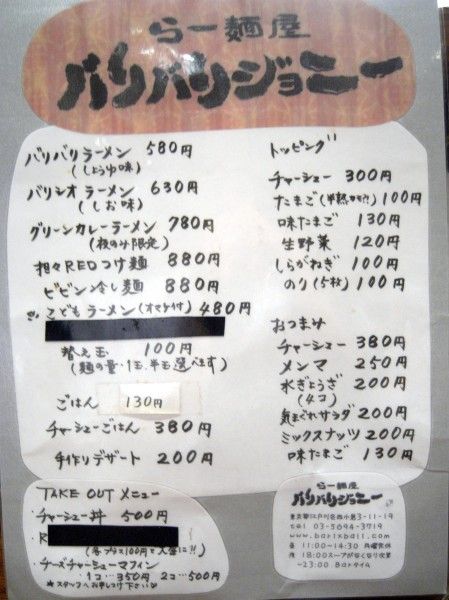 らー麺屋
バリバリジョニー
バリバリラーメン 580円
(しょうゆ味)
バリシオラーメン 630円
(しお味)
グリーンカレーラーメン 780円
(夜のみ限定)
担々REDつけ麺 880円
ビビン冷し麺 880円
こどもラーメン(オマケ付) 480円
替え玉 100円
(麺の量・1玉、半玉選べます)
ごはん 130円
チャーシューごはん 380円
手作りデザート 200円
トッピング
チャーシュー 300円
たまご(半熟かも?!) 100円
味たまご 130円
生野菜 120円
しらがねぎ 100円
のり(5枚) 100円
おつまみ
チャーシュー 380円
メンマ 250円
水ぎょうざ 200円
(4コ)
気まぐれサラダ 200円
ミックスナッツ 200円
味たまご 130円
TAKE OUT メニュー
チャーシュー丼 500円
(各プラス100円で大盛に!!)
チーズチャーシューマフィン
1コ…350円 2コ…500円
★スタッフへお申しつけ下さい
らー麺屋
バリバリジョニー
東京都江戸川区西小岩3-11-19
tel 03-5694-3719
www.barixbali.com
昼 11:00~14:30 月曜定休
夜 18:00スープが無くなり次第
~23:00 Barタイム